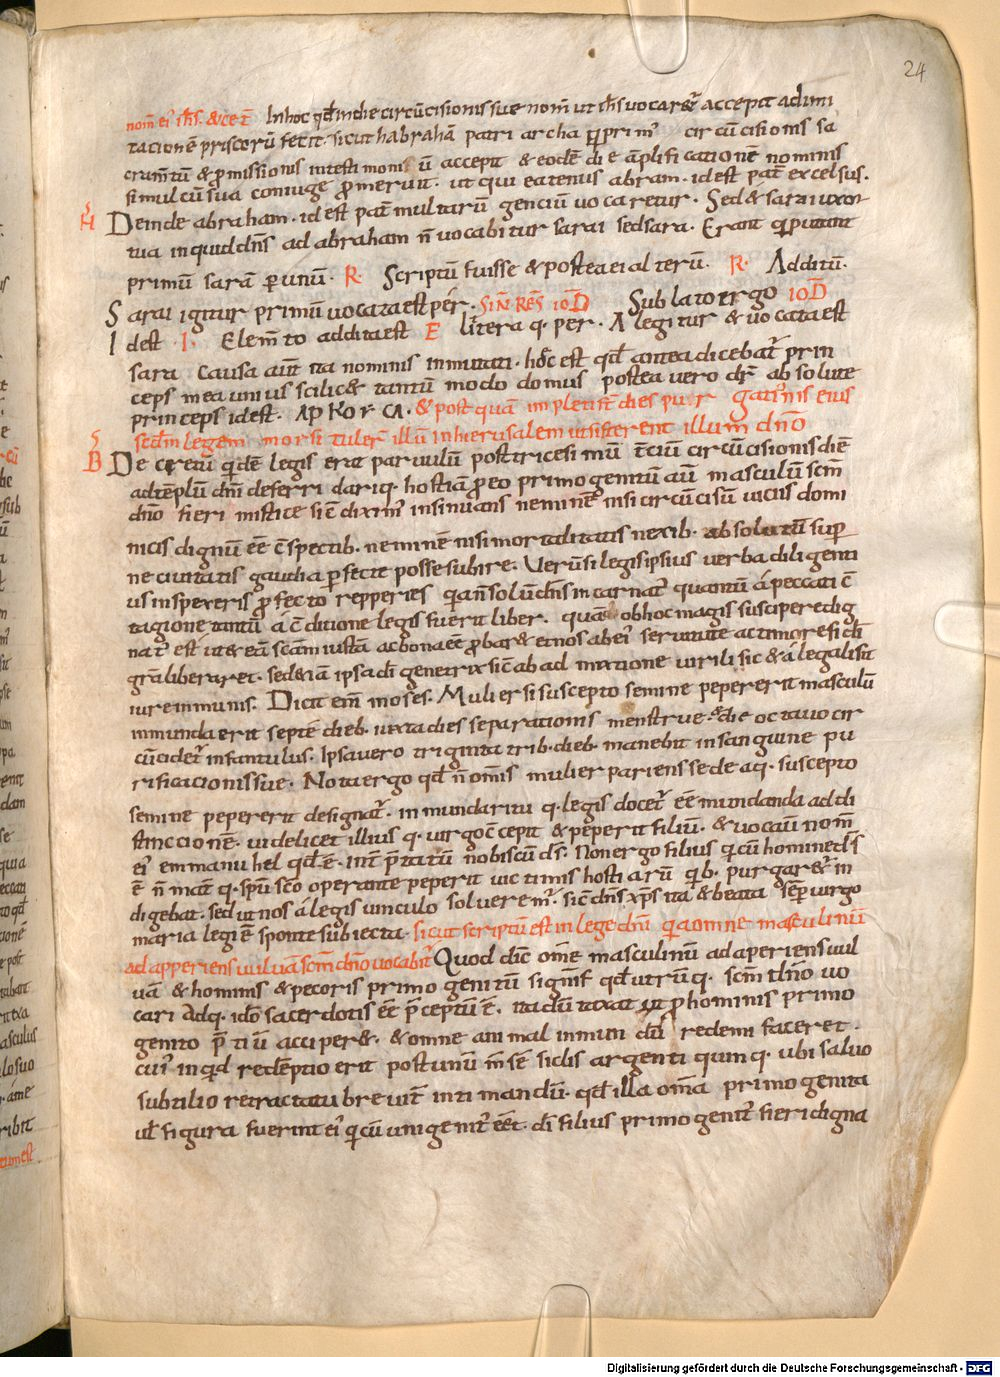 24
nom̄ ei' ih̄s. & cet̄ In hoc qd̄ in die circūcisionis sue nom̄ ut ih̄s uocar&ur accepit ad imi
tacionē priscorū fecit. sicut habrahā patri archa qͥ primꝰ circūcisionis sa
cram̄tū & ꝓmissionis in testimoniū accepit & eodē die āplificationē nominis
simul cū sua coniuge ꝓmeruit. ut qui eatenus abram. id est pat̄ excelsus.
H Deinde abraham. id est pat̄ multarū genciū uocaretur. Sed & sarai uxor
tua inquid dn̄s ad abraham n̄ uocabitur sarai sed sara. Erant qͥ putant
primū sarā ꝑ unū. R. Scriptū fuisse & postea ei alterū. R. Additū.
Sarai igitur primū uocata est per. SIN̄ RES̄ IOD̄ Sublato ergo IOD̄
Id est .I. Elem̄to addita est E litera q. per. A legitur & uocata est
sara Causa aut̄ ita nominis inmutati. hoc est qd̄ antea dicebat̄ prin
ceps mea unius scilic& tantū modo domus postea uero dr̄ absolute
princeps id est. ΑΡΚΟΥCΑ. & postquā impleti sr̄ dies purgationis eius
scd̄m legem morsi tuler̄ illū in hierusalem ut sisterent illum dn̄o
B De cretū qͥdē legis erat paruulū post tricesimū t̄ciū circūcisionis diē
ad tēplū dn̄i deferri dariq. hostiā ꝓ eo primogenitū aū masculū scm̄
dn̄o fieri mistice sic̄ diximꝰ insinuans neminē nisi circūcisū uiciis domi
nicis dignū ēē c̄spectib. neminē nisi mortalitatis nexib. absolutū suꝑ
ne ciuitatis gaudia ꝑfecte posse subire. Uerū si legis ipsius uerba diligenti
us inspexeris ꝓfecto repperies qͥa n̄ solū dn̄s incarnatꝰ quantū á peccati c̄
tagione tantū a c̄ditione legis fuerit liber. quā ob hoc magis suscipere dig
natꝰ est ut & eā scām iustā ac bonā ēē ꝓbar& et nos ab eiꝰ seruitute ac timore fidei
gr̄a liberaret. sed & iā ipsa di genetrix sic̄ ab admixtione uirili sic & á legalis sit
iure inmunis. Dicit em̄ moses. Mulier si suscepto semine pepererit masculū
inmunda erit septē dieb. iuxta dies separationis menstrue. & die octauo cir
cūcidet̄ infantulus. Ipsa uero triginta trib. dieb. manebit in sanguine pu
rificacionis sue. Nota ergo qd̄ n̄ om̄is mulier pariens sed ea q. suscepto
semine pepererit designat̄. inmunda ritu q. legis docet̄ ēē mundanda ad di
stinccionē. uidelicet illius q. uirgo c̄cepit & peperit filiū. & uocauit nom̄
eiꝰ emmanuhel qd̄ ē. int̄pr̄tatū nobiscū ds̄. Non ergo filius qͥ cū homine ds̄
ē n̄ mat̄ q. spū sc̄o operante peperit uictimis hostiarū qͥb. purgar&ur in
digebat. sed ut nos á legis uinculo solueremꝰ. sic̄ dn̄s xp̄s ita & beata sēꝑ uirgo
maria legi ē sponte subiecta. sicut scriptū est in lege dn̄i qͥa omne masculinū
ad apperiens uuluā scm̄ dn̄o uocabit̄ Quod dic̄ om̄e masculinū ad aperiens uul
uā & hominis & pecoris primogenitū signif̄ qd̄ utrūq. scm̄ dn̄o uo
cari adq. idō sacerdotis ēē p̄ceptū ē. ita dū taxat ut ꝓ hominis primo
genito p̄tiū acciper&. & omne animal inmundū redemi faceret.
cuiꝰ inqͥd redēptio erit post unū m̄sē siclis argenti quinq. ubi saluo
subtilio retractatu breuit̄ intimandū. qd̄ illa om̄a primogenita
ul̄ figura fuerint eiꝰ qͥ cū unigenitꝰ ēēt. di filius primogenitꝰ fieri digna
Digitalisierung gefördert durch die Deutsche Forschungsgemeinschaft - DFG